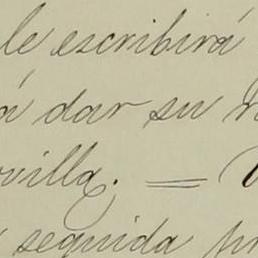 le escribirá
á dar su
villa; =
seguida